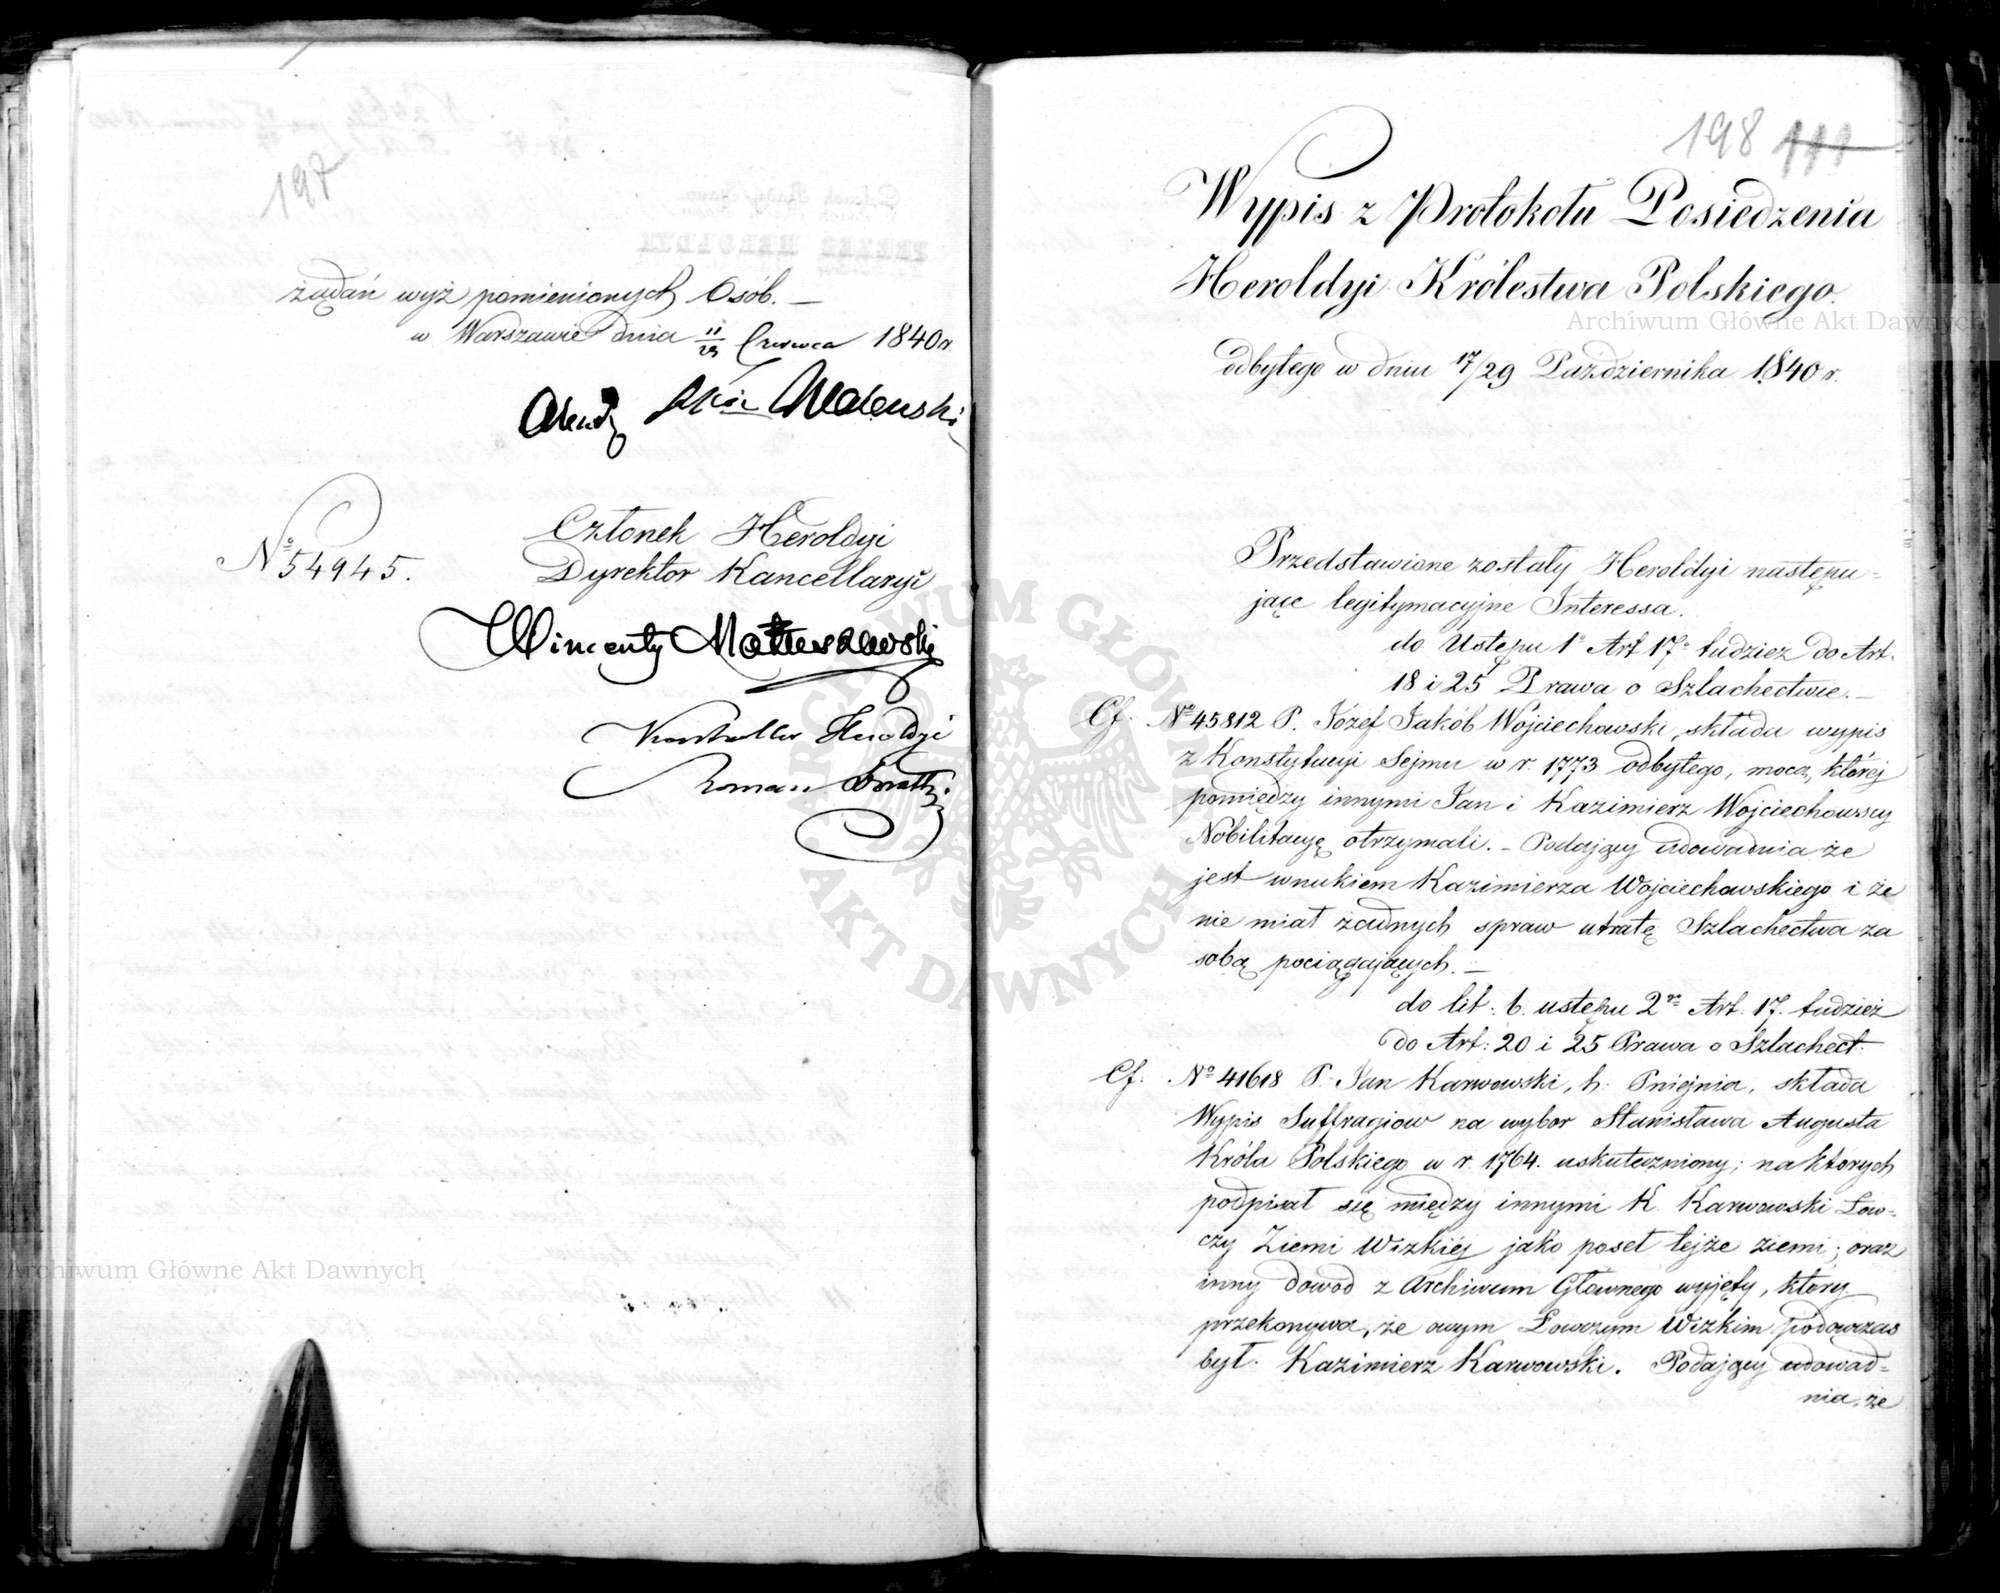 197
żądań wyż pomienionych Osób. —
w Warszawie dnia 11/23 Czerwca 1840 r.
Członek Heroldyi
Nº 54945.
Dyrektor Kancellaryi
Wincenty Matuszewski
Kontroller Heroldyi
Roman
198
Wypis z Protokołu Posiedzenia
Heroldyi Królestwa Polskiego.
odbytego w dniu 17/29 Października 1840 r.
Przedstawione zostały Heroldyi następu=
jące legitymacyjne Interessa.
do Ustępu 1º Art 17º tudzież do Art.
18 i 25 Prawa o Szlachectwie. —
Cf. Nº 45812 P. Józef Jakób Wojciechowski, składa wypis
z Konstytucyi Sejmu w r. 1773 odbytego, mocą której
pomiędzy innymi Jan i Kazimierz Wojciechowscy
Nobilitacyę otrzymali. – Podający udowadnia że
jest wnukiem Kazimierza Wojciechowskiego i że
nie miał żadnych spraw utratę Szlachectwa za
sobą pociągających. —
do lit: b. ustępu 2go Art. 17. tudzież
do Art: 20 i 25 Prawa o Szlachect.
Cf. Nº 41618 P. Jan Karwowski, h. Pniejnia, składa
Wypis Suffragiow na wybor Stanisława Augusta
Króla Polskiego w r. 1764. uskuteczniony; na ktorych
podpisał się między innymi K. Karwowski Łow=
czy Ziemi Wizkiéj jako poseł tejże ziemi; oraz
inny dowód z Archiwum Głównego wyjęty, który
przekonywa, że owym Łowczym Wizkim podówczas
był. Kazimierz Karwowski. Podający udowad=
nia, że
Archiwum Główne Akt Dawnych
Archiwum Główne Akt Dawnych
ARCHIWUM GŁÓWNE AKT DAWNYCH